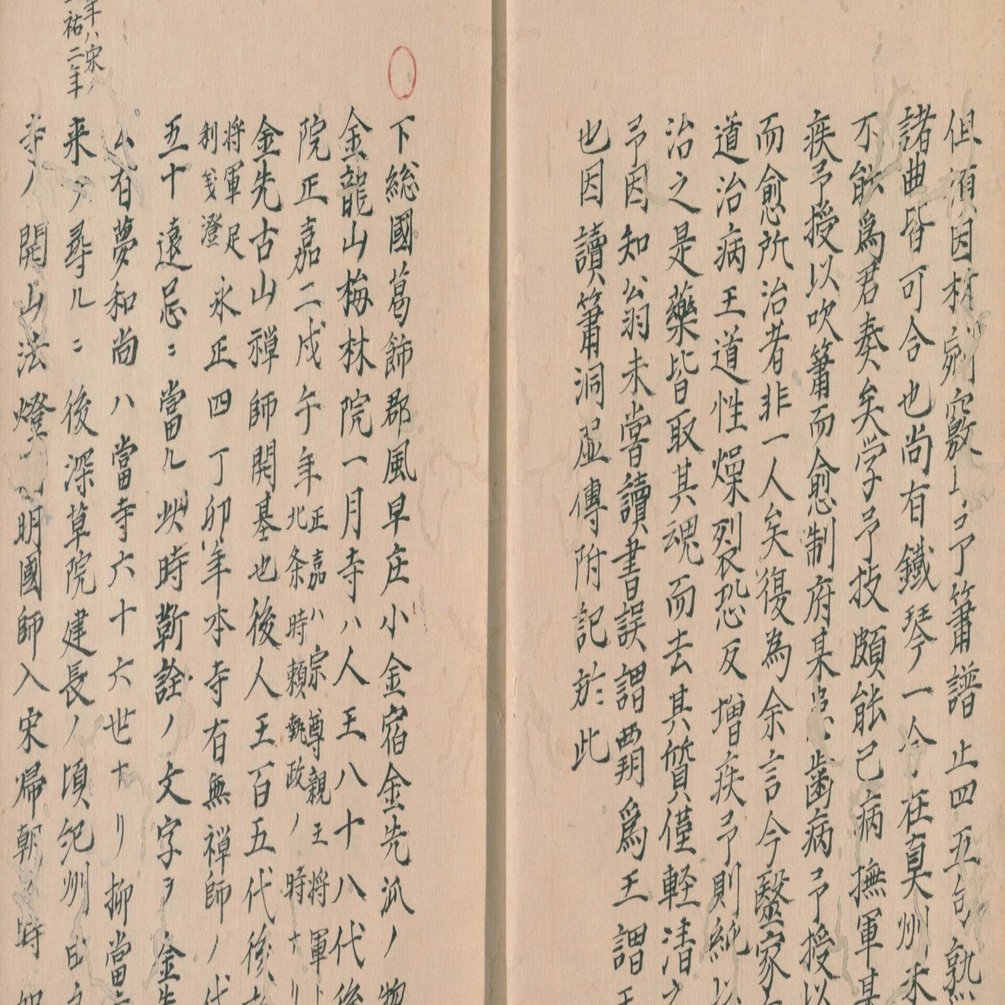 但須因材剜竅工予簫譜止四五句熟
諸曲皆可合也尚有鐵琴一今在真州米
不能為君奏矣学予技頗能已病撫軍某
疾予授以吹簫而愈制府某患歯病予授以
而愈所治者非一人矣復為余言今醫家
道治病王道性燥裂恐反增疾予則純以
治之是藥皆取其魂而去其質僅軽清之
予因知翁未嘗讀書誤謂覇為王謂王
也因讀簫洞虛傳附記於此
下総國葛飾郡風早庄小金宿金先派ノ惣
金龍山梅林院一月寺ハ人王八十八代後
院正嘉二戊午年正嘉ハ宗尊親王将軍ト
北条時頼執政ノ時ナリ
金先古山禅師開基也後人王百五代後
将軍足
利義澄永正四丁卯年本寺有無禅師ノ代
五十遠忌ニ當ル此時新詮ノ文字ヲ金先
ム有夢和尚ハ當寺六十六世ナリ抑當
来ヲ尋ルニ後深草院建長ノ頃紀州由
寺ノ開山法燈明國師入宋帰朝ノ時
年ハ宋ノ
祐二年